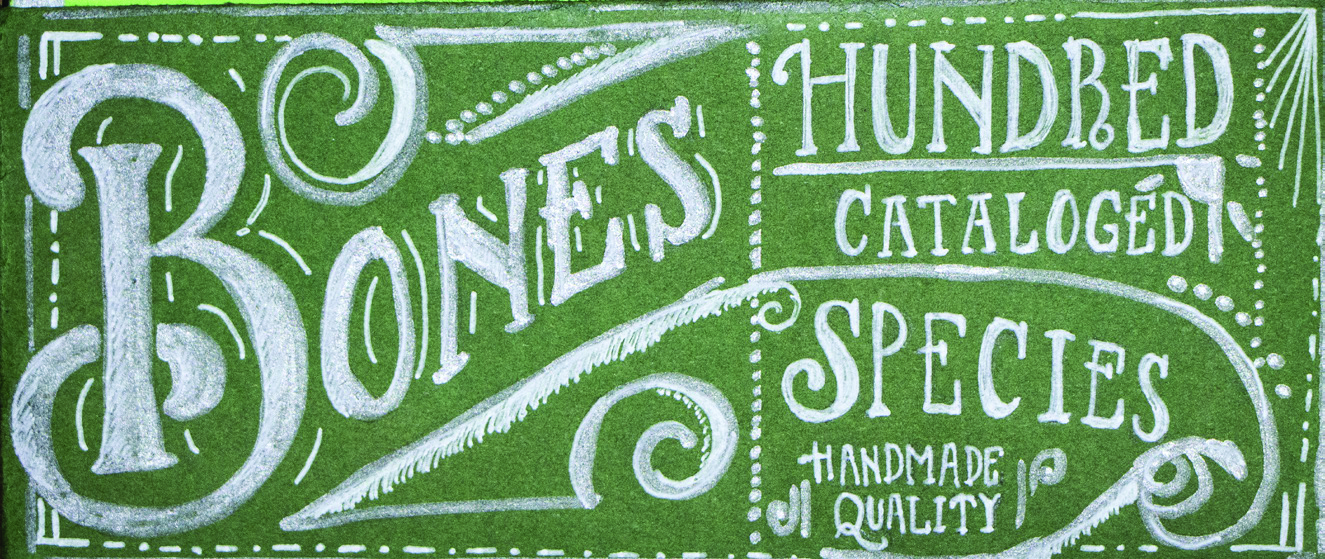 BONES
HUNDRED
CATALOGÉD
SPECIES
HANDMADE
QUALITY